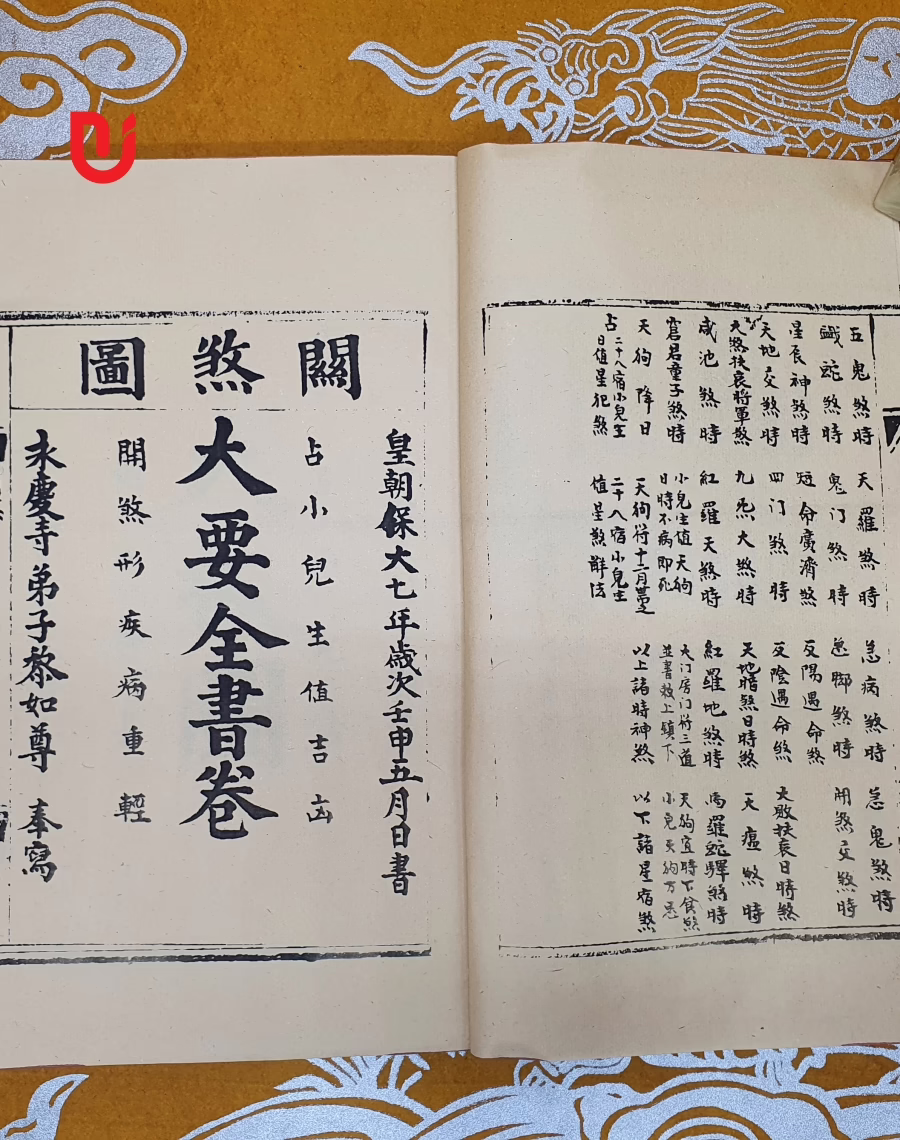 五鬼煞時 天羅煞時 急病煞時 急鬼煞時
蛇煞時 鬼门煞時 急脚煞時 用煞交煞時
星辰神煞時 短命廣濟煞 反陽遇命煞
天地交煞時 四门煞時 反陰遇命煞 大敗扶衰日時煞
大煞扶衰將軍煞 九炁大煞時 天地暗煞日時煞 天瘟煞時
咸池煞時 紅羅天煞時 紅羅地煞時 馬羅蛇驛煞時
君童子煞時 小兒生值天狗 大门房门符三道 天狗宜時下食煞
日時不病即死 並書敕上鎮下 小兒天狗方
天狗降日 天狗符十二月 以上諸時神煞 以下諸星宿煞
占二十八宿小兒生 二十八宿小兒生
日值星犯煞 值星煞解法
關煞圖
皇朝保大七年歲次壬申五月日書
占小兒生值吉凶
大要全書卷
開煞形疾病重輕
永慶寺弟子黎如尊 奉寫